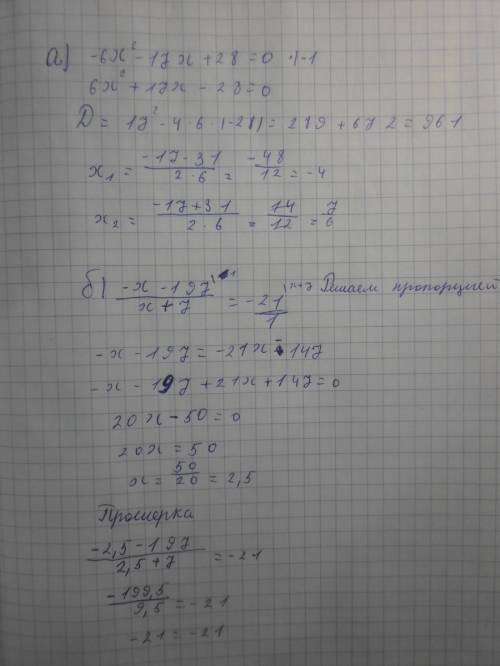 а) -6x² - 17x + 28 = 0 · (-1
6x² + 17x - 28 = 0
D = 17² - 4 · 6 · (-28) = 289 + 672 = 961
x₁ = (-17 - 31)/(2 · 6) = -48/12 = -4
x₂ = (-17 + 31)/(2 · 6) = 14/12 = 7/6
б) (-x - 197)/(x + 7) = -21/1 Решаем пропорцией
-x - 197 = -21x - 147
-x - 197 + 21x + 147 = 0
20x - 50 = 0
20x = 50
x = 50/20 = 2,5
Проверка
(-2,5 - 197)/(2,5 + 7) = -21
-199,5/9,5 = -21
-21 = -21